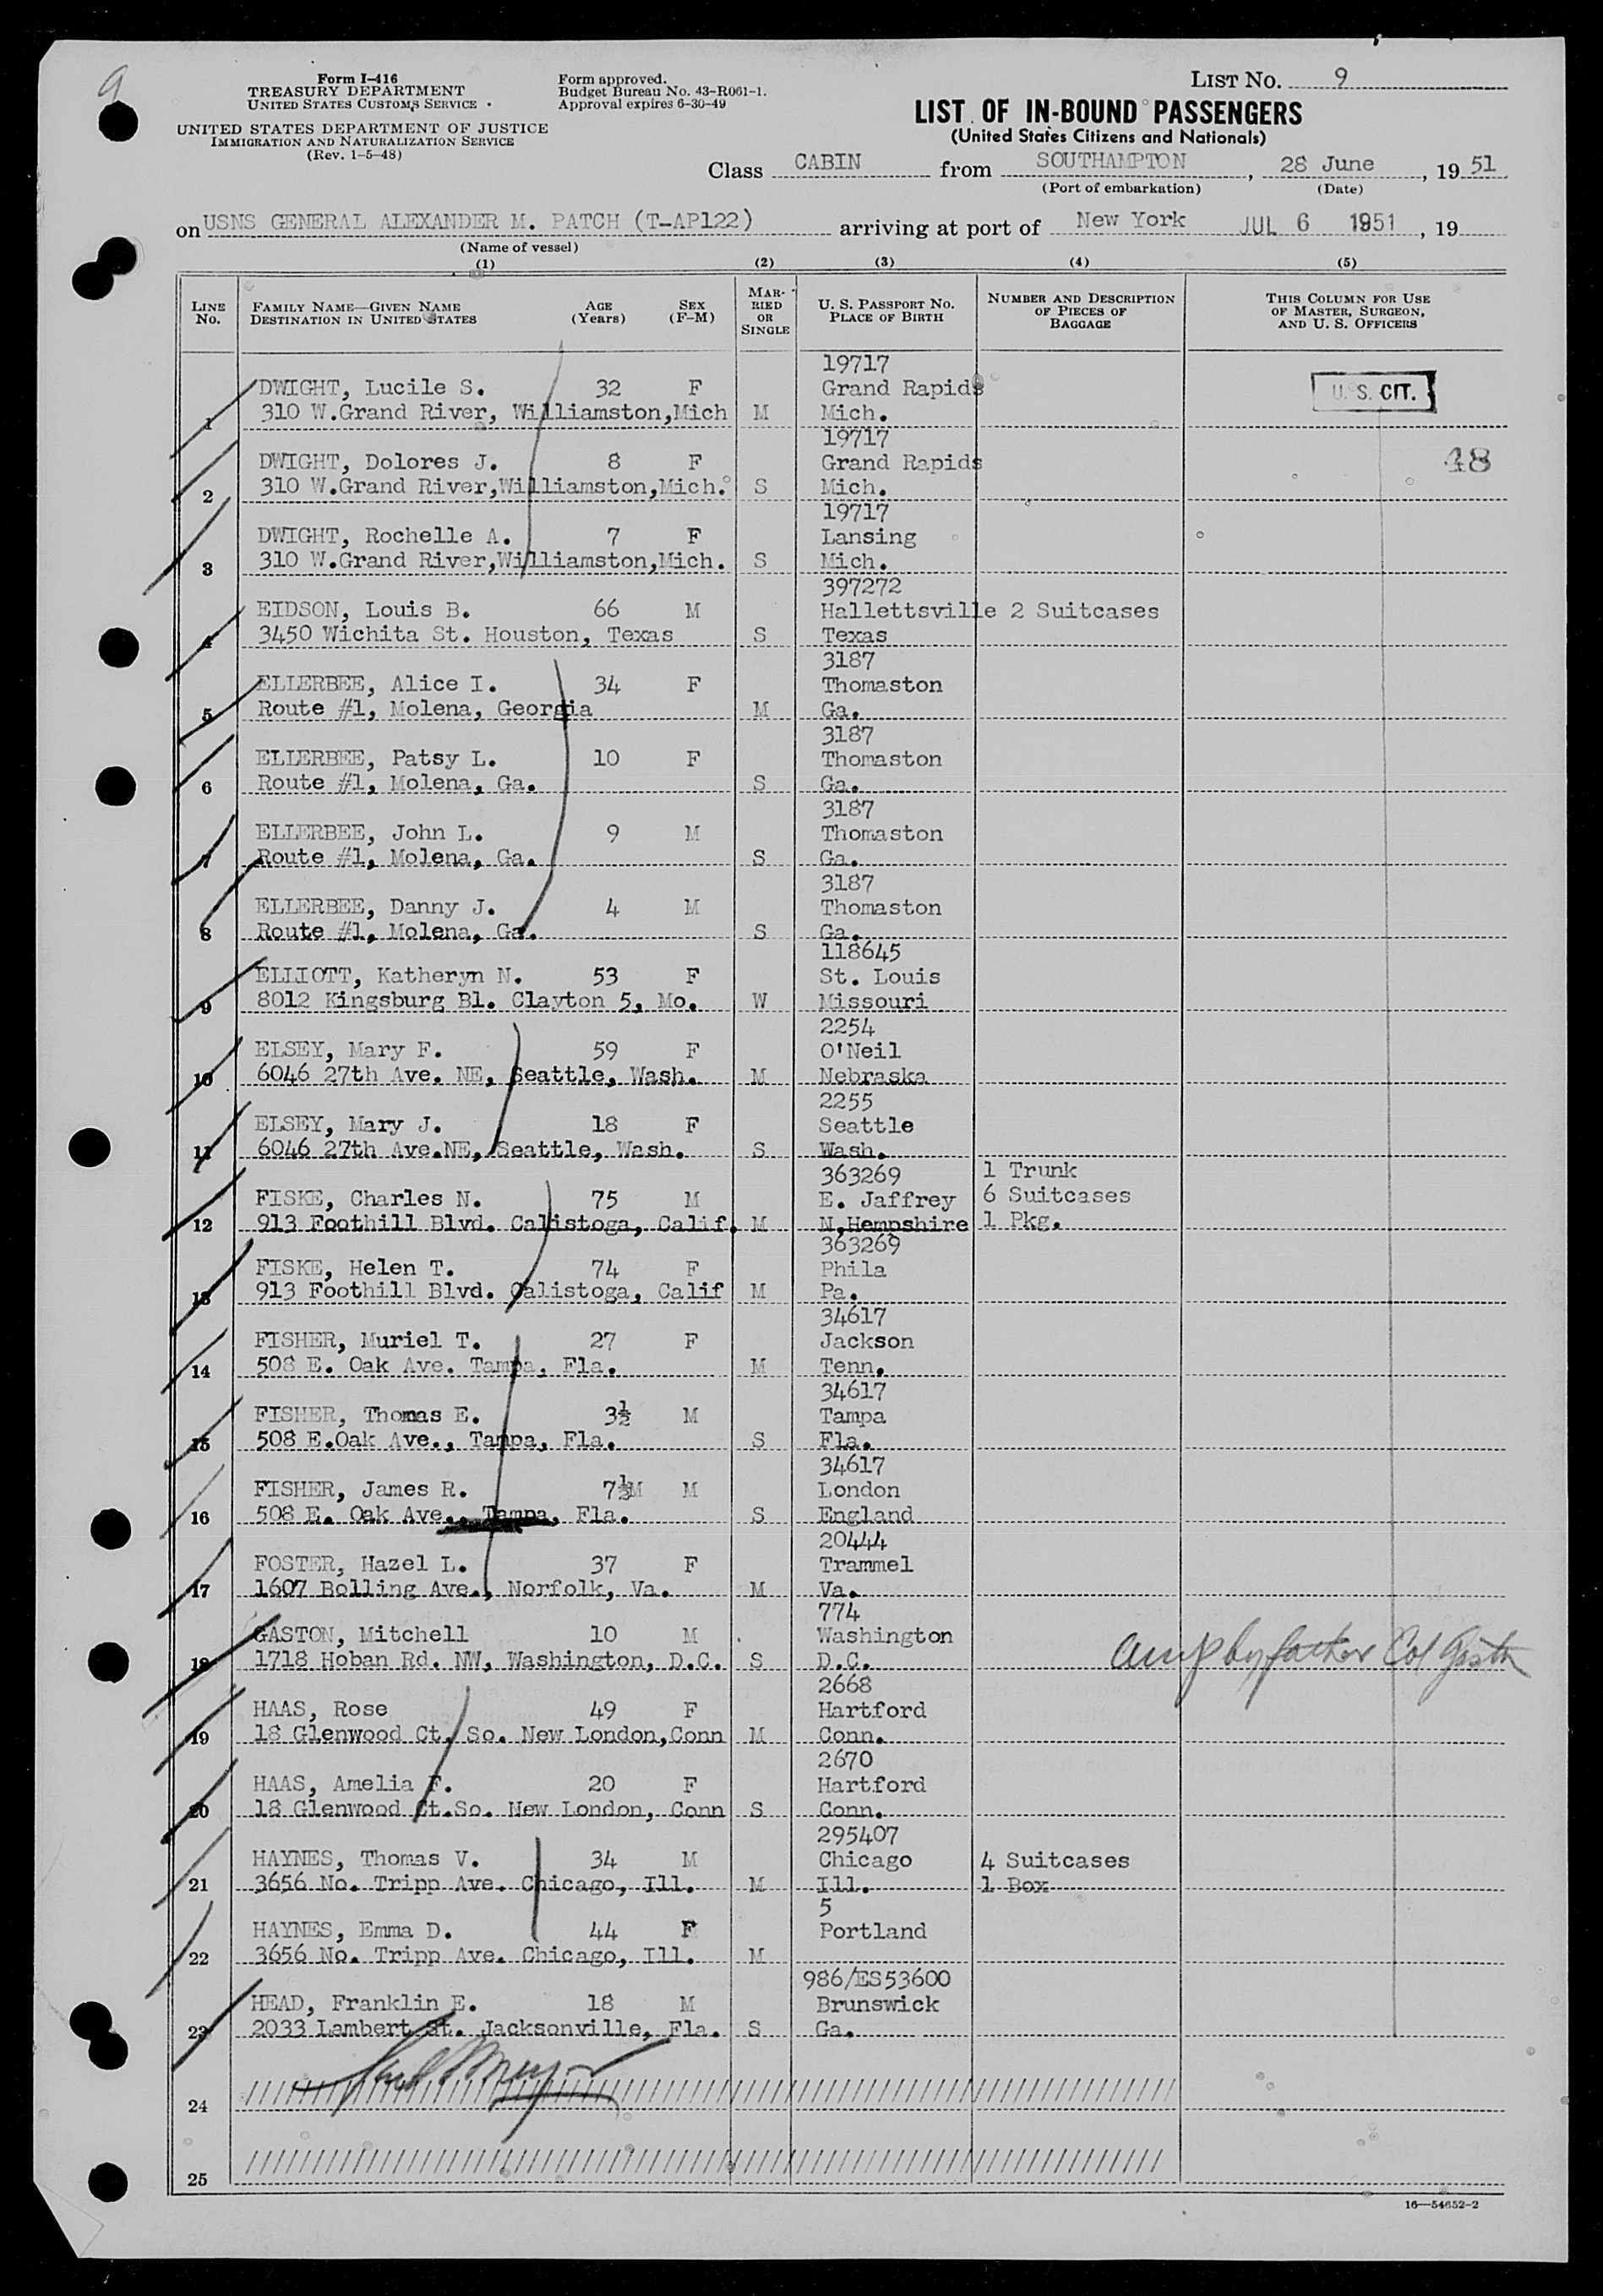 9
Form I-416
TREASURY DEPARTMENT
UNITED STATES CUSTOMS SERVICE
UNITED STATES DEPARTMENT OF JUSTICE
IMMIGRATION AND NATURALIZATION SERVICE
(Rev. 1-5-48)
Form approved.
Budget Bureau No. 43-R061-1.
Approval expires 6-30-49
LIST NO. 9
LIST OF IN-BOUND PASSENGERS
(United States Citizens and Nationals)
Class CABIN from SOUTHAMPTON, 28 June, 19 51
(Port of embarkation) (Date)
on USNS GENERAL ALEXANDER M. PATCH (T-AP122) arriving at port of New York JUL 6 1951, 19
(Name of vessel)
(1) (2) (3) (4) (5)
LINE NO.
FAMILY NAME—GIVEN NAME
DESTINATION IN UNITED STATES
AGE (Years)
SEX (F-M)
MARRIED OR SINGLE
U. S. PASSPORT NO.
PLACE OF BIRTH
NUMBER AND DESCRIPTION OF PIECES OF BAGGAGE
THIS COLUMN FOR USE OF MASTER, SURGEON, AND U. S. OFFICERS
19717
DWIGHT, Lucile S. 32 F Grand Rapids U. S. CIT.
1 310 W.Grand River, Williamston,Mich M Mich.
19717
DWIGHT, Dolores J. 8 F Grand Rapids 48
2 310 W.Grand River,Williamston,Mich. S Mich.
19717
DWIGHT, Rochelle A. 7 F Lansing
3 310 W.Grand River,Williamston,Mich. S Mich.
397272
EIDSON, Louis B. 66 M Hallettsville 2 Suitcases
4 3450 Wichita St. Houston, Texas S Texas
3187
ELLERBEE, Alice I. 34 F Thomaston
5 Route #1, Molena, Georgia M Ga.
3187
ELLERBEE, Patsy L. 10 F Thomaston
6 Route #1, Molena, Ga. S Ga.
3187
ELLERBEE, John L. 9 M Thomaston
7 Route #1, Molena, Ga. S Ga.
3187
ELLERBEE, Danny J. 4 M Thomaston
8 Route #1, Molena, Ga. S Ga.
118645
ELLIOTT, Katheryn N. 53 F St. Louis
9 8012 Kingsburg Bl. Clayton 5, Mo. W Missouri
2254
ELSEY, Mary F. 59 F O'Neil
10 6046 27th Ave. NE, Seattle, Wash. M Nebraska
2255
ELSEY, Mary J. 18 F Seattle
11 6046 27th Ave.NE, Seattle, Wash. S Wash.
363269 1 Trunk
FISKE, Charles N. 75 M E. Jaffrey 6 Suitcases
12 913 Foothill Blvd. Calistoga, Calif. M N,Hempshire 1 Pkg.
363269
FISKE, Helen T. 74 F Phila
13 913 Foothill Blvd. Calistoga, Calif M Pa.
34617
FISHER, Muriel T. 27 F Jackson
14 508 E. Oak Ave. Tampa, Fla. M Tenn.
34617
FISHER, Thomas E. 3½ M Tampa
15 508 E.Oak Ave., Tampa, Fla. S Fla.
34617
FISHER, James R. M London
16 508 E. Oak Ave., Tampa, Fla. S England
20444
FOSTER, Hazel L. 37 F Trammel
17 1607 Bolling Ave., Norfolk, Va. M Va.
774
GASTON, Mitchell 10 M Washington
18 1718 Hoban Rd. NW, Washington, D.C. S D.C. by father Col
2668
HAAS, Rose 49 F Hartford
19 18 Glenwood Ct. So. New London,Conn M Conn.
2670
HAAS, Amelia F. 20 F Hartford
20 18 Glenwood Ct.So. New London, Conn S Conn.
295407
HAYNES, Thomas V. 34 M Chicago 4 Suitcases
21 3656 No. Tripp Ave. Chicago, Ill. M Ill. 1 Box
5
HAYNES, Emma D. 44 F Portland
22 3656 No. Tripp Ave. Chicago, Ill. M
986/ES53600
HEAD, Franklin E. 18 M Brunswick
23 2033 Lambert St. Jacksonville, Fla. S Ga.
24
25
16—54652-2